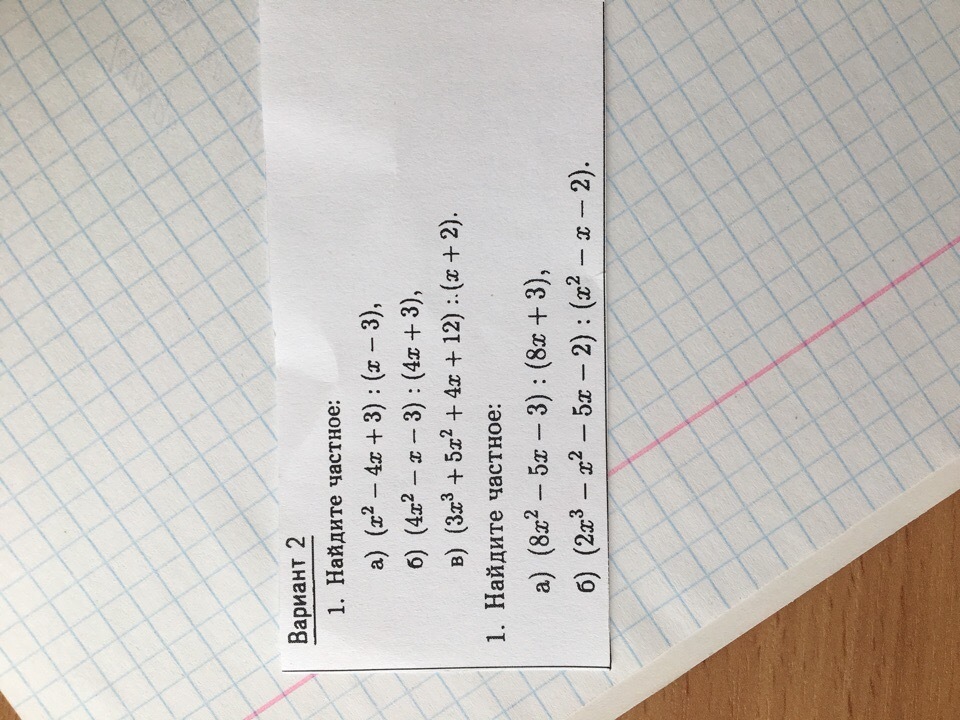 Вариант 2
1. Найдите частное:
а) (x² − 4x + 3) : (x − 3),
б) (4x² − x − 3) : (4x + 3),
в) (3x³ + 5x² + 4x + 12) : (x + 2).
1. Найдите частное:
а) (8x² − 5x − 3) : (8x + 3),
б) (2x³ − x² − 5x − 2) : (x² − x − 2).